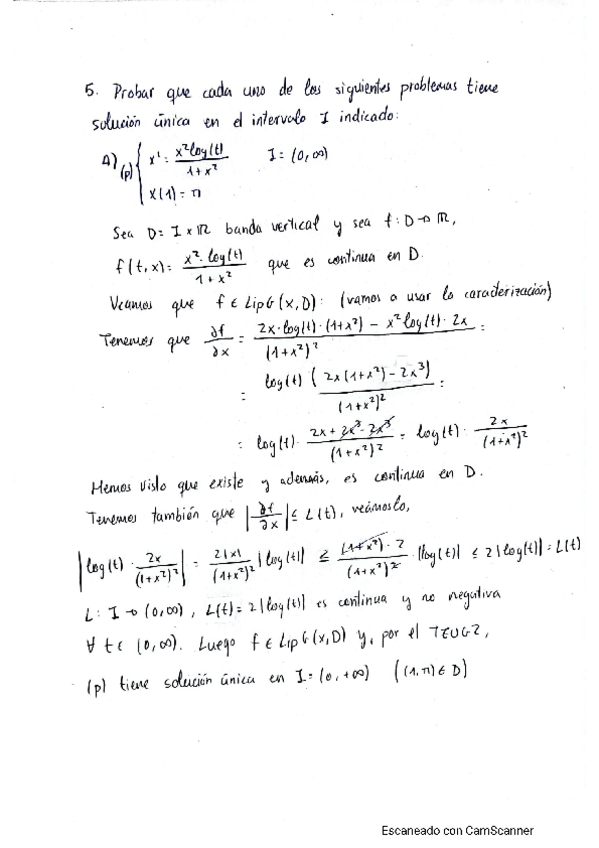 5. Probar que cada uno de los siguientes problemas tiene
solución única en el intervalo I indicado:
4) (p) { x' = x² log(t) / 1+x²   I = (0, ∞)
x(1) = π
Sea D = I × ℝ banda vertical y sea f: D → ℝ,
f(t,x) = x² · log(t) / 1+x² que es continua en D.
Veamos que f ∈ LipG(x,D): (vamos a usar la caracterización)
Tenemos que ∂f/∂x = 2x·log(t)·(1+x²) − x² log(t)·2x / (1+x²)² =
= log(t) (2x(1+x²) − 2x³) / (1+x²)² =
= log(t) · 2x + 2x³ − 2x³ / (1+x²)² = log(t) · 2x / (1+x²)²
Hemos visto que existe y además, es continua en D.
Tenemos también que |∂f/∂x| ≤ L(t), veámoslo,
|log(t) · 2x / (1+x²)²| = 2|x| / (1+x²)² |log(t)| ≤ (1+x²)·2 / (1+x²)² · |log(t)| ≤ 2|log(t)| = L(t)
L: I → (0,∞), L(t) = 2|log(t)| es continua y no negativa
∀ t ∈ (0,∞). Luego f ∈ LipG(x,D) y, por el TEUG2,
(p) tiene solución única en I = (0,+∞) ((1,π) ∈ D)
Escaneado con CamScanner